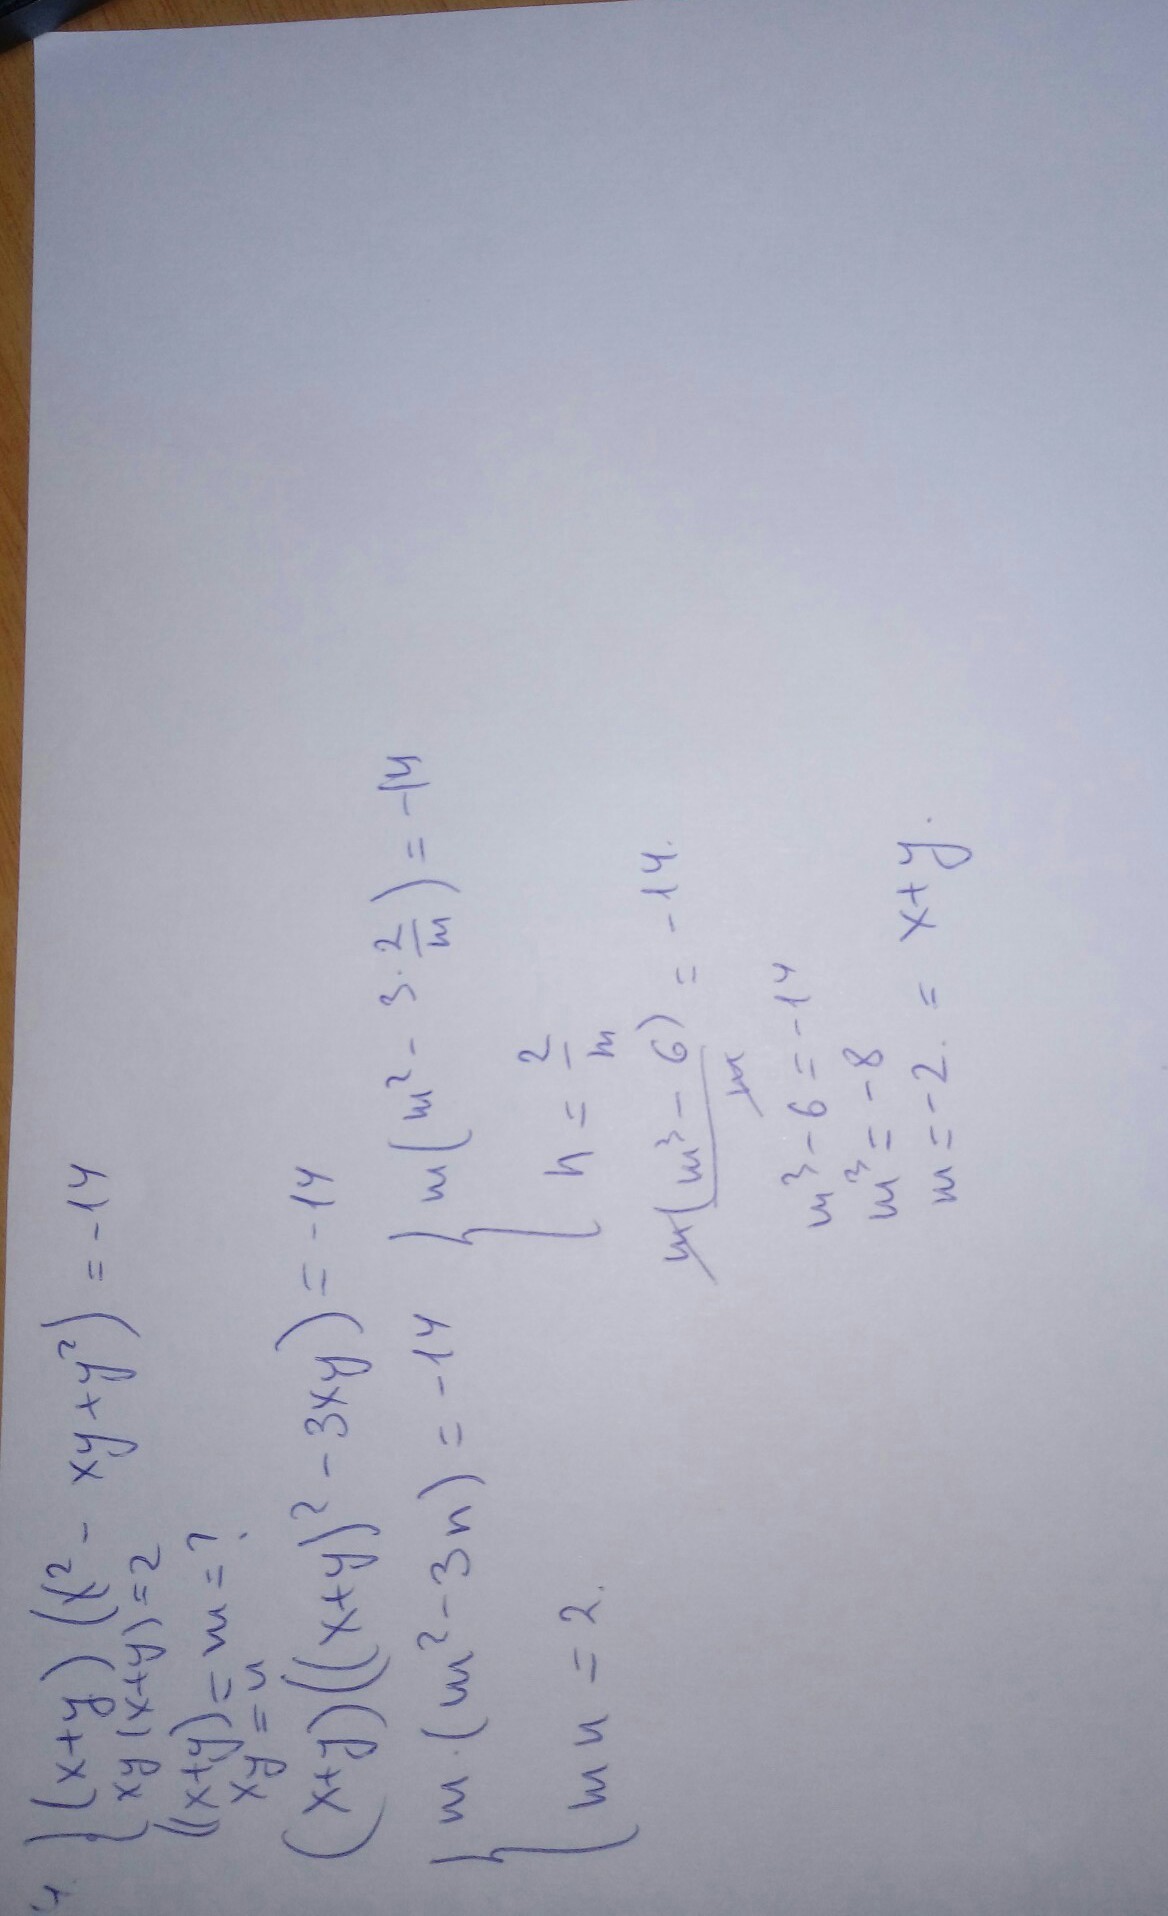 4. { (x+y)(x² - xy+y²) = -14
xy(x+y)=2
((x+y)=m=?
xy=n
(x+y)((x+y)² - 3xy) = -14
{ m·(m² - 3n) = -14
m n = 2.
{ m(m² - 3·2/m) = -14
n = 2/m
m(m³ - 6)/m = -14.
m³ - 6 = -14
m³ = -8
m = -2. = x+y.